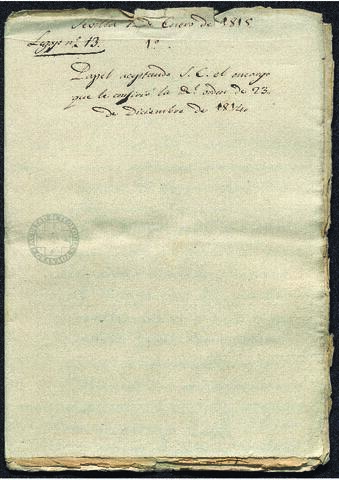 Sevilla 1º de Enero de 1815
Legajo nº 13. 1º
Papel aceptando S. E. el encargo
que le confirió la Rl. orden de 23.
de Diciembre de 1814.